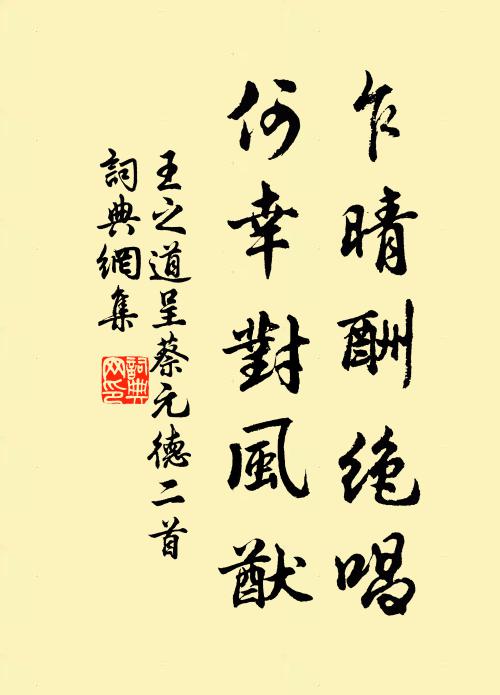 乍晴酬絶唱
何幸對風猷
王之道呈蔡元德二首
詞典網集
詞典網印